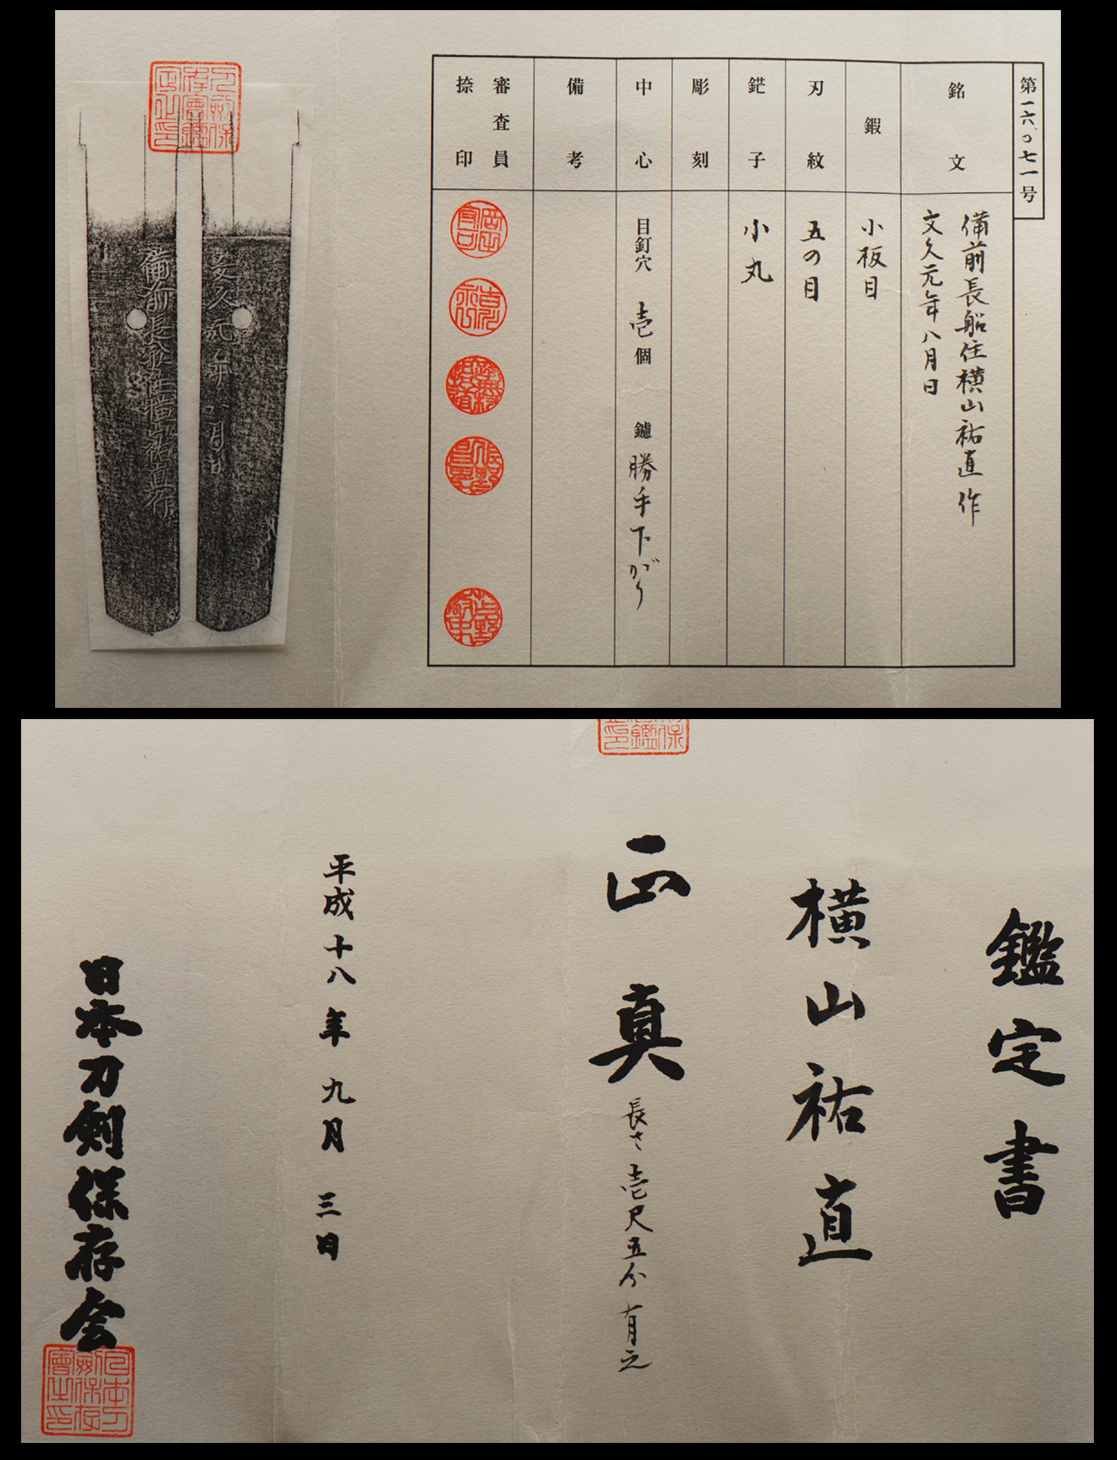 第一六〇七一号
銘文
備前長船住横山祐直作
文久元年八月日
鍜
小板目
刃紋
五の目
鋩子
小丸
彫刻
中心
目釘穴 壱個 鑢 勝手下がり
備考
審査員
捺印
備前長船住横山祐直作
文久元年八月日
鑑定書
横山祐直
正真
長さ壱尺五分有之
平成十八年九月三日
日本刀剣保存会